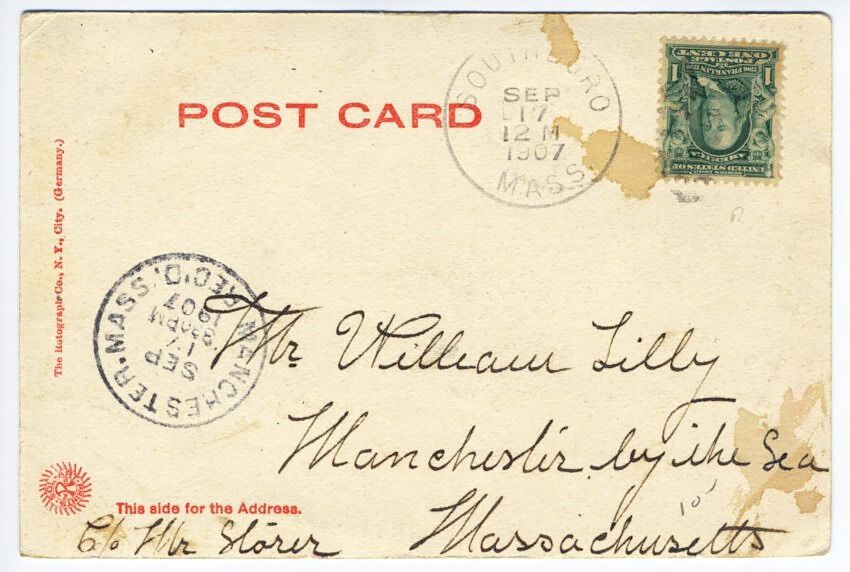 POST CARD
SOUTHBORO
SEP
17
12 M
1907
MASS.
ONE CENT
POSTAGE
1 1
FRANKLIN
AMERICA
UNITED STATES OF
The Rotograph Co., N. Y., City. (Germany.)
MANCHESTER. MASS. REC'D.
SEP
17
PM
1907
Mr. William Lilly
Manchester by the Sea
Massachusetts
10
This side for the Address.
C/o Mr Storer